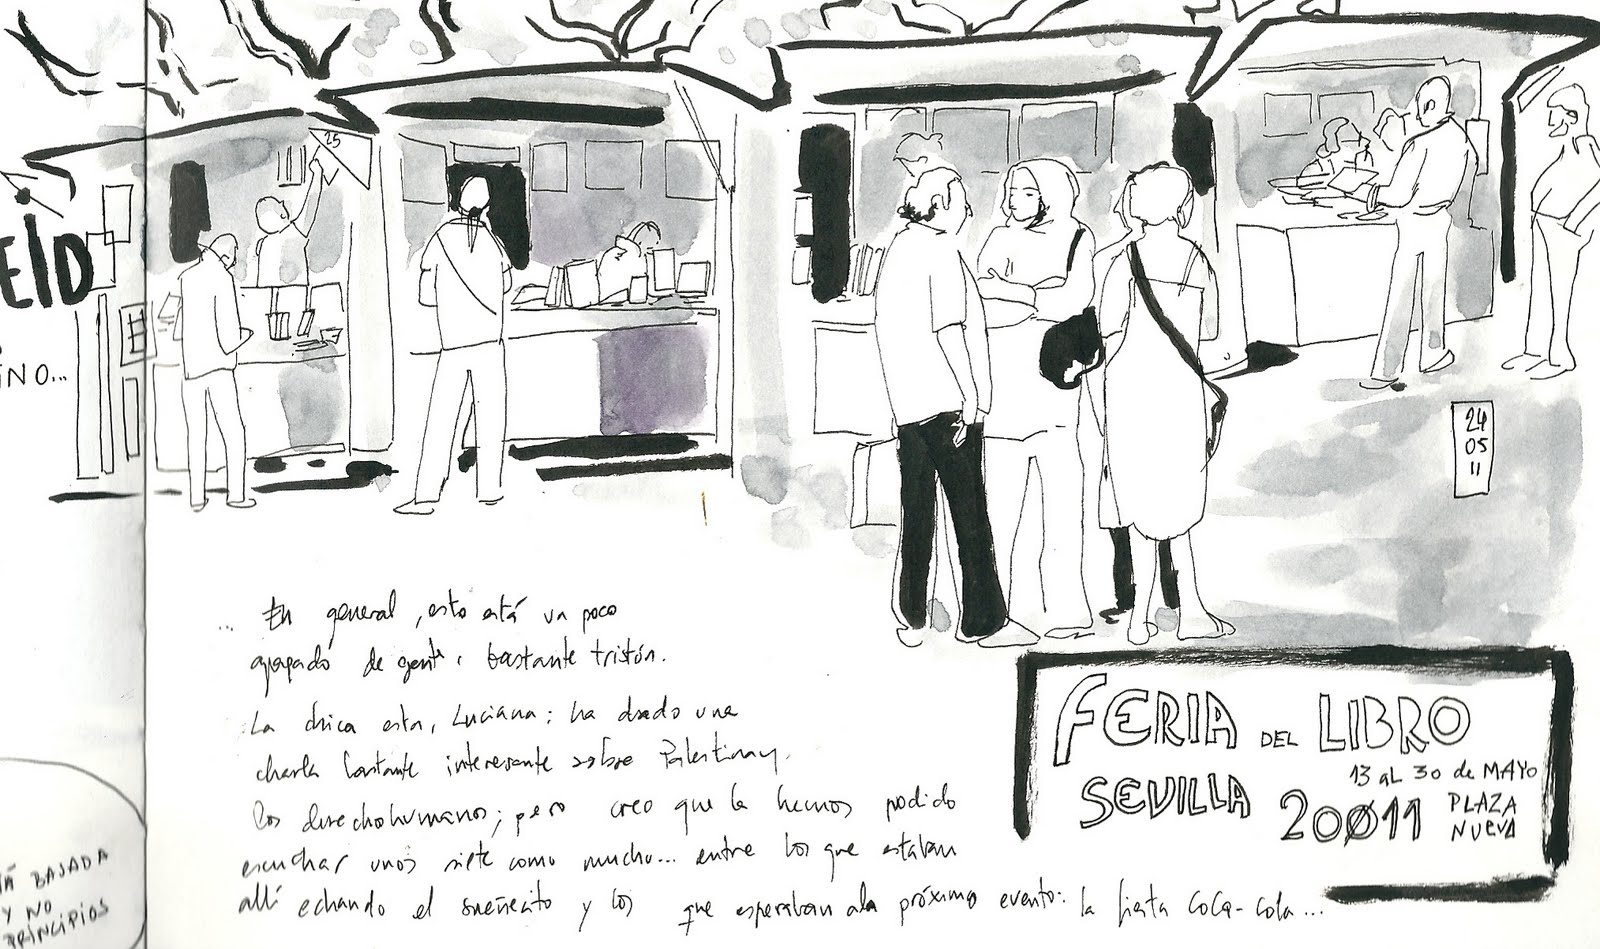 25
EID
INO...
24
05
11
... En general, esto está un poco
apagado de gente, bastante tristón.
La chica esta, Luciana; ha dado una
charla bastante interesante sobre Palestina y
los derechos humanos; pero creo que la hemos podido
escuchar unos siete como mucho... entre los que estaban
allí echando el sueñecito y los que esperaban a la próximo evento: la fiesta Coca-Cola...
FERIA DEL LIBRO
13 aL 30 de MAYO
SEVILLA 20011 PLAZA
NUEVA
BAJADA
Y NO
PRINCIPIOS